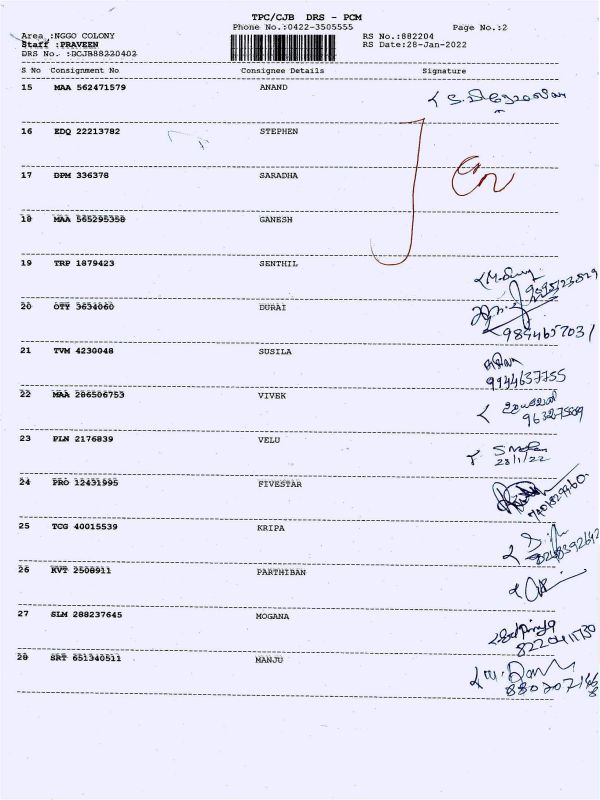 TPC/CJB DRS - PCM
Phone No.:0422-3505555 Page No.:2
Area :NGGO COLONY RS No.:882204
Staff :PRAVEEN RS Date:28-Jan-2022
DRS No. :DCJB88220402
S No Consignment No Consignee Details Signature
15 MAA 562471579 ANAND
16 EDQ 22213782 STEPHEN
17 DPM 336378 SARADHA
18 MAA 565295358 GANESH
19 TRP 1879423 SENTHIL
20 OTY 3634060 DURAI
9894657031
21 TVM 4230048 SUSILA
9944637755
22 MAA 286506753 VIVEK
23 PLN 2176839 VELU
28/1/22
24 PRO 12431995 FIVESTAR
25 TCG 40015539 KRIPA
26 KVT 2508911 PARTHIBAN
27 SLM 288237645 MOGANA
8220411730
28 SRT 651340511 MANJU